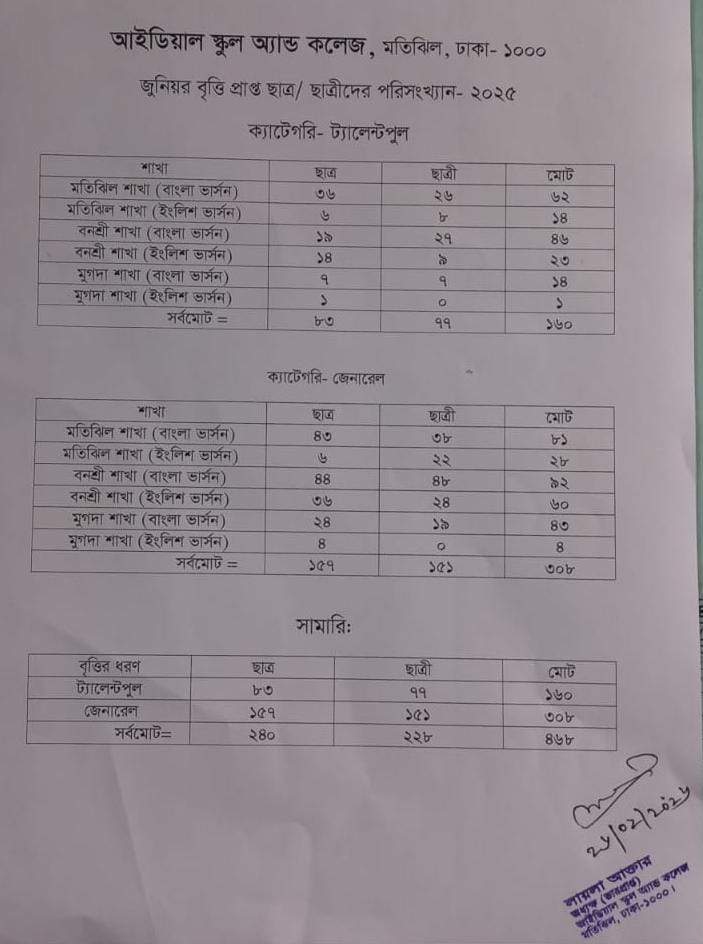 আইডিয়াল স্কুল অ্যান্ড কলেজ, মতিঝিল, ঢাকা- ১০০০
জুনিয়র বৃত্তি প্রাপ্ত ছাত্র/ ছাত্রীদের পরিসংখ্যান- ২০২৫
ক্যাটেগরি- ট্যালেন্টপুল
শাখা ছাত্র ছাত্রী মোট
মতিঝিল শাখা (বাংলা ভার্সন) ৩৬ ২৬ ৬২
মতিঝিল শাখা (ইংলিশ ভার্সন) ৬ ৮ ১৪
বনশ্রী শাখা (বাংলা ভার্সন) ১৯ ২৭ ৪৬
বনশ্রী শাখা (ইংলিশ ভার্সন) ১৪ ৯ ২৩
মুগদা শাখা (বাংলা ভার্সন) ৭ ৭ ১৪
মুগদা শাখা (ইংলিশ ভার্সন) ১ ০ ১
সর্বমোট = ৮৩ ৭৭ ১৬০
ক্যাটেগরি- জেনারেল
শাখা ছাত্র ছাত্রী মোট
মতিঝিল শাখা (বাংলা ভার্সন) ৪৩ ৩৮ ৮১
মতিঝিল শাখা (ইংলিশ ভার্সন) ৬ ২২ ২৮
বনশ্রী শাখা (বাংলা ভার্সন) ৪৪ ৪৮ ৯২
বনশ্রী শাখা (ইংলিশ ভার্সন) ৩৬ ২৪ ৬০
মুগদা শাখা (বাংলা ভার্সন) ২৪ ১৯ ৪৩
মুগদা শাখা (ইংলিশ ভার্সন) ৪ ০ ৪
সর্বমোট = ১৫৭ ১৫১ ৩০৮
সামারি:
বৃত্তির ধরণ ছাত্র ছাত্রী মোট
ট্যালেন্টপুল ৮৩ ৭৭ ১৬০
জেনারেল ১৫৭ ১৫১ ৩০৮
সর্বমোট= ২৪০ ২২৮ ৪৬৮
লায়লা আক্তার
অধ্যক্ষ (ভারপ্রাপ্ত)
আইডিয়াল স্কুল অ্যান্ড কলেজ
মতিঝিল, ঢাকা-১০০০।